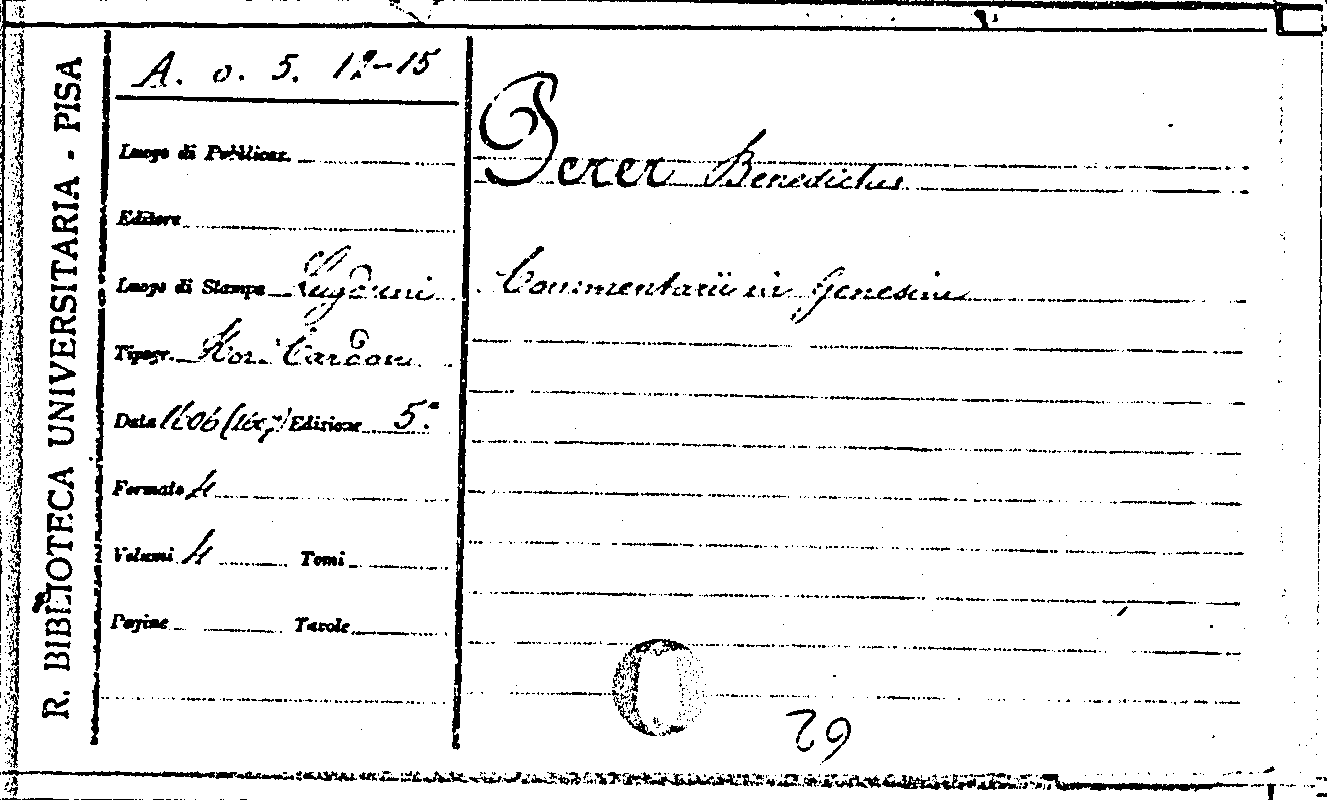 R. BIBLIOTECA UNIVERSITARIA - PISA
A. o. 5. 12-15
Luogo di Pubblicaz.
Editore
Luogo di Stampa Lugduni
Tipogr. Hor. Cardon
Data 1606 (1607) Edizione 5.ª
Formato 4
Volumi 4 Tomi
Pagine Tavole
Perer Benedictus
Commentarii in Genesim
29